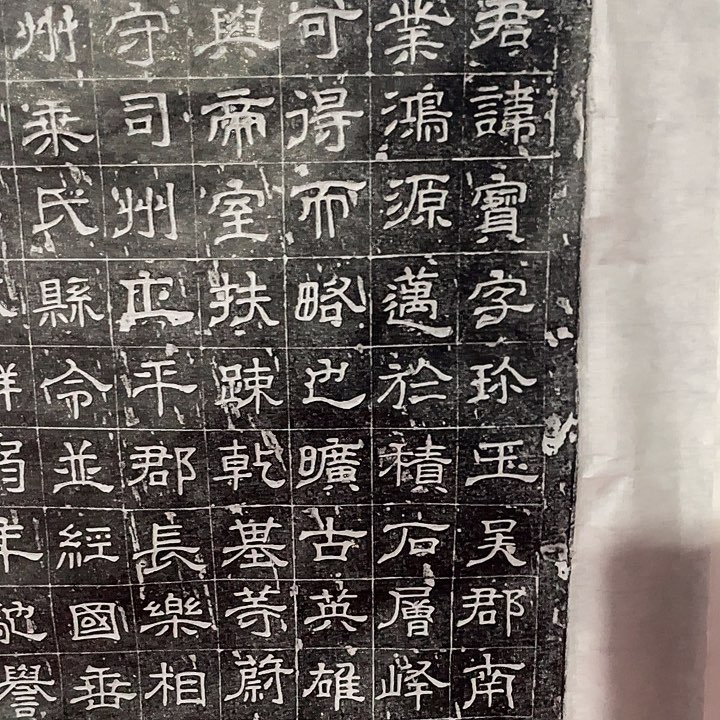 君諱寶字珍玉吴郡南
業鴻源邁於積石層峰
可得而略也曠古英雄
與帝室扶踈乾基等蔚
守司州正平郡長樂相
州乘氏縣令並經國垂
年馳譽